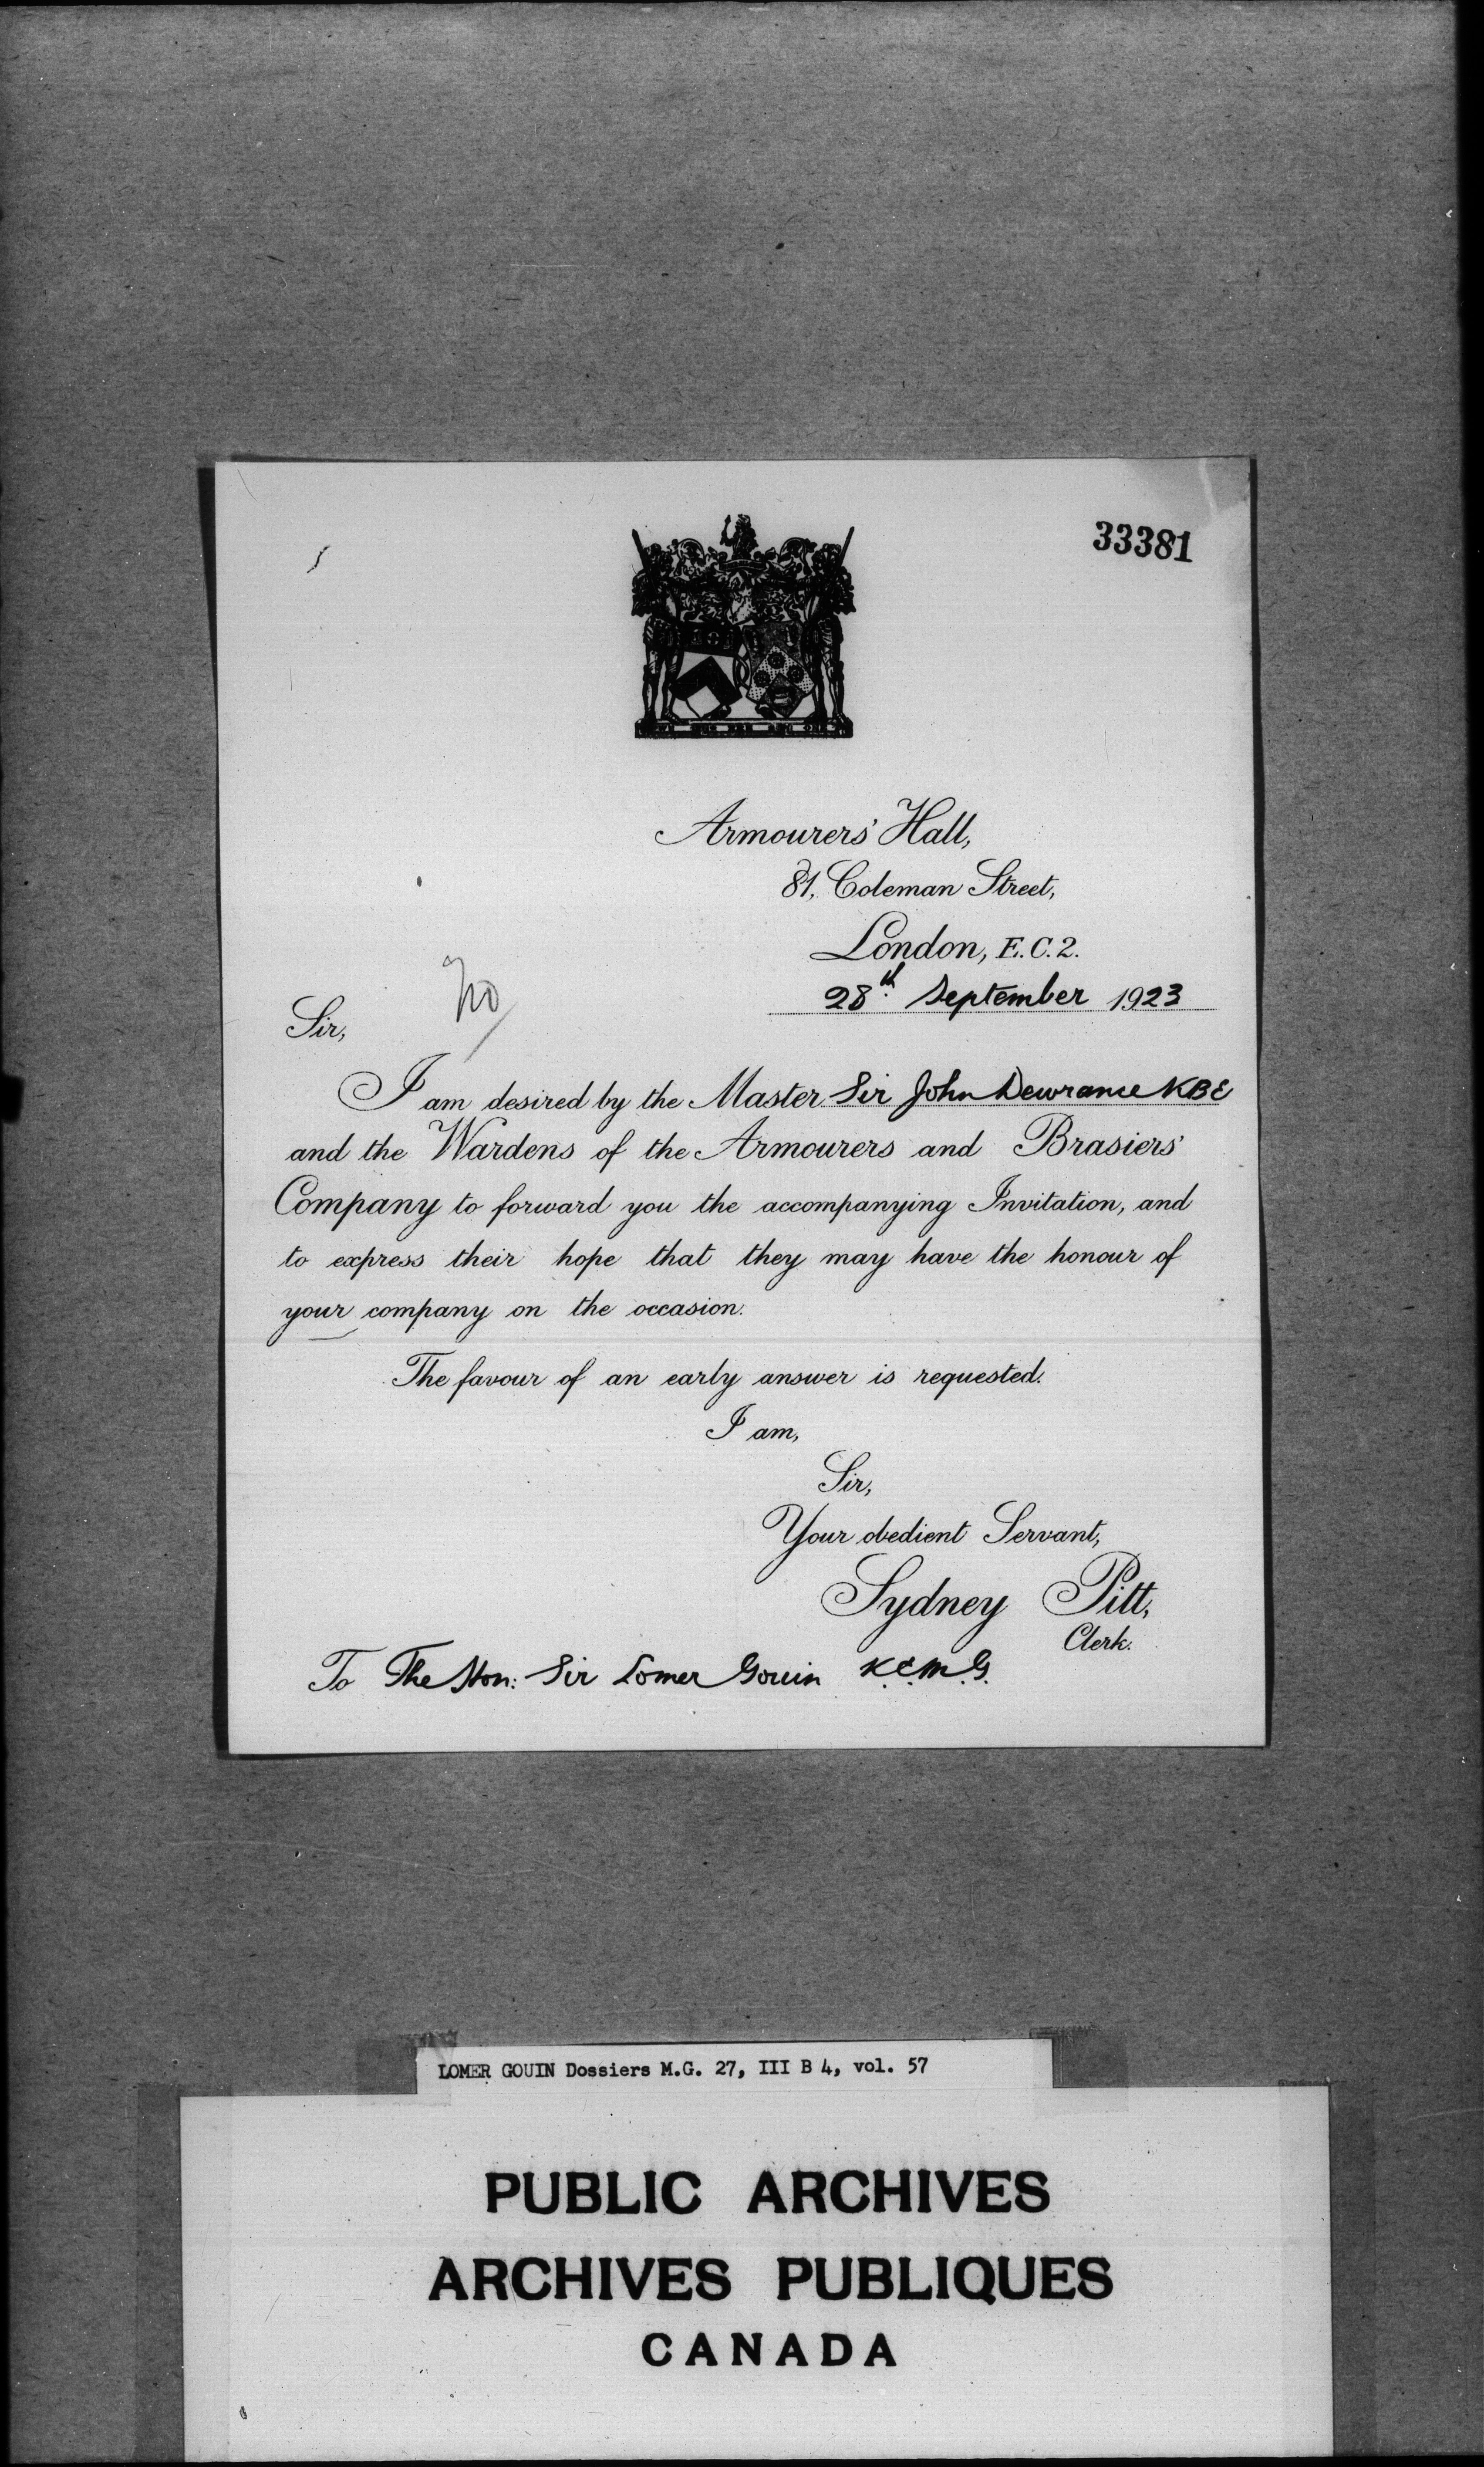 33381
Armourers' Hall,
81, Coleman Street,
London, E.C.2.
28th. September 1923
No
Sir,
I am desired by the Master Sir John Dewrance KBE
and the Wardens of the Armourers and Brasiers'
Company to forward you the accompanying Invitation, and
to express their hope that they may have the honour of
your company on the occasion.
The favour of an early answer is requested.
I am,
Sir,
Your obedient Servant,
Sydney Pitt,
Clerk.
To The Hon: Sir Lomer Gouin K.C.M.G.
LOMER GOUIN Dossiers M.G. 27, III B 4, vol. 57
PUBLIC ARCHIVES
ARCHIVES PUBLIQUES
CANADA